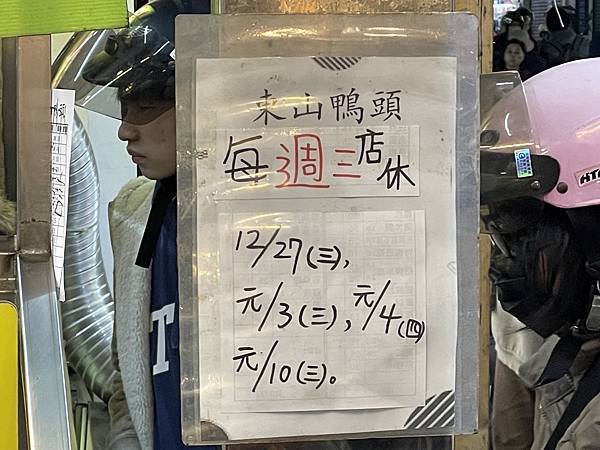 東山鴨頭
每週三店休
12/27(三),
元/3(三),元/4(四)
元/10(三)。